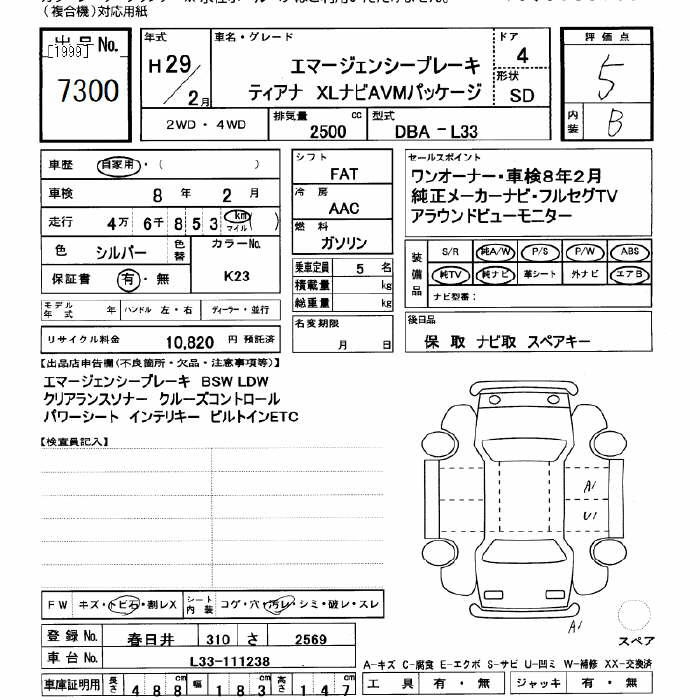 (複合機)対応用紙
出品No.
[1999]
7300
年式 車名・グレード ドア 評価点
H29/2月 エマージェンシーブレーキ 4 5
ティアナ XLナビAVMパッケージ 形状 SD 内装 B
2WD・4WD 排気量 2500 cc 型式 DBA-L33
車歴 自家用・( )
車検 8年 2月
走行 4万 6千 8 5 3 km マイル ( )
色 シルバー 色替 カラーNo.
保証書 有・無 K23
モデル年式 年 ハンドル 左・右 ディーラー・並行
リサイクル料金 10,820 円 預託済
シフト FAT
冷房 AAC
燃料 ガソリン
乗車定員 5 名
積載量 kg
総重量 kg
名変期限 月 日
セールスポイント
ワンオーナー・車検8年2月
純正メーカーナビ・フルセグTV
アラウンドビューモニター
装備品 S/R 純A/W P/S P/W ABS
純TV 純ナビ 革シート 外ナビ エアB
ナビ型番:
後日品
保 取 ナビ取 スペアキー
【出品店申告欄(不良箇所・欠品・注意事項等)】
エマージェンシーブレーキ BSW LDW
クリアランスソナー クルーズコントロール
パワーシート インテリキー ビルトインETC
【検査員記入】
A1
U1
A1
スペア
FW キズ・トビ石・割レX シート内装 コゲ・穴・汚レ・シミ・破レ・スレ
登録No. 春日井 310 さ 2569
車台No. L33-111238
A-キズ C-腐食 E-エクボ S-サビ U-凹ミ W-補修 XX-交換済
車庫証明用 長さ 488 cm 幅 183 cm 高さ 147 cm
工具 有・無 ジャッキ 有・無